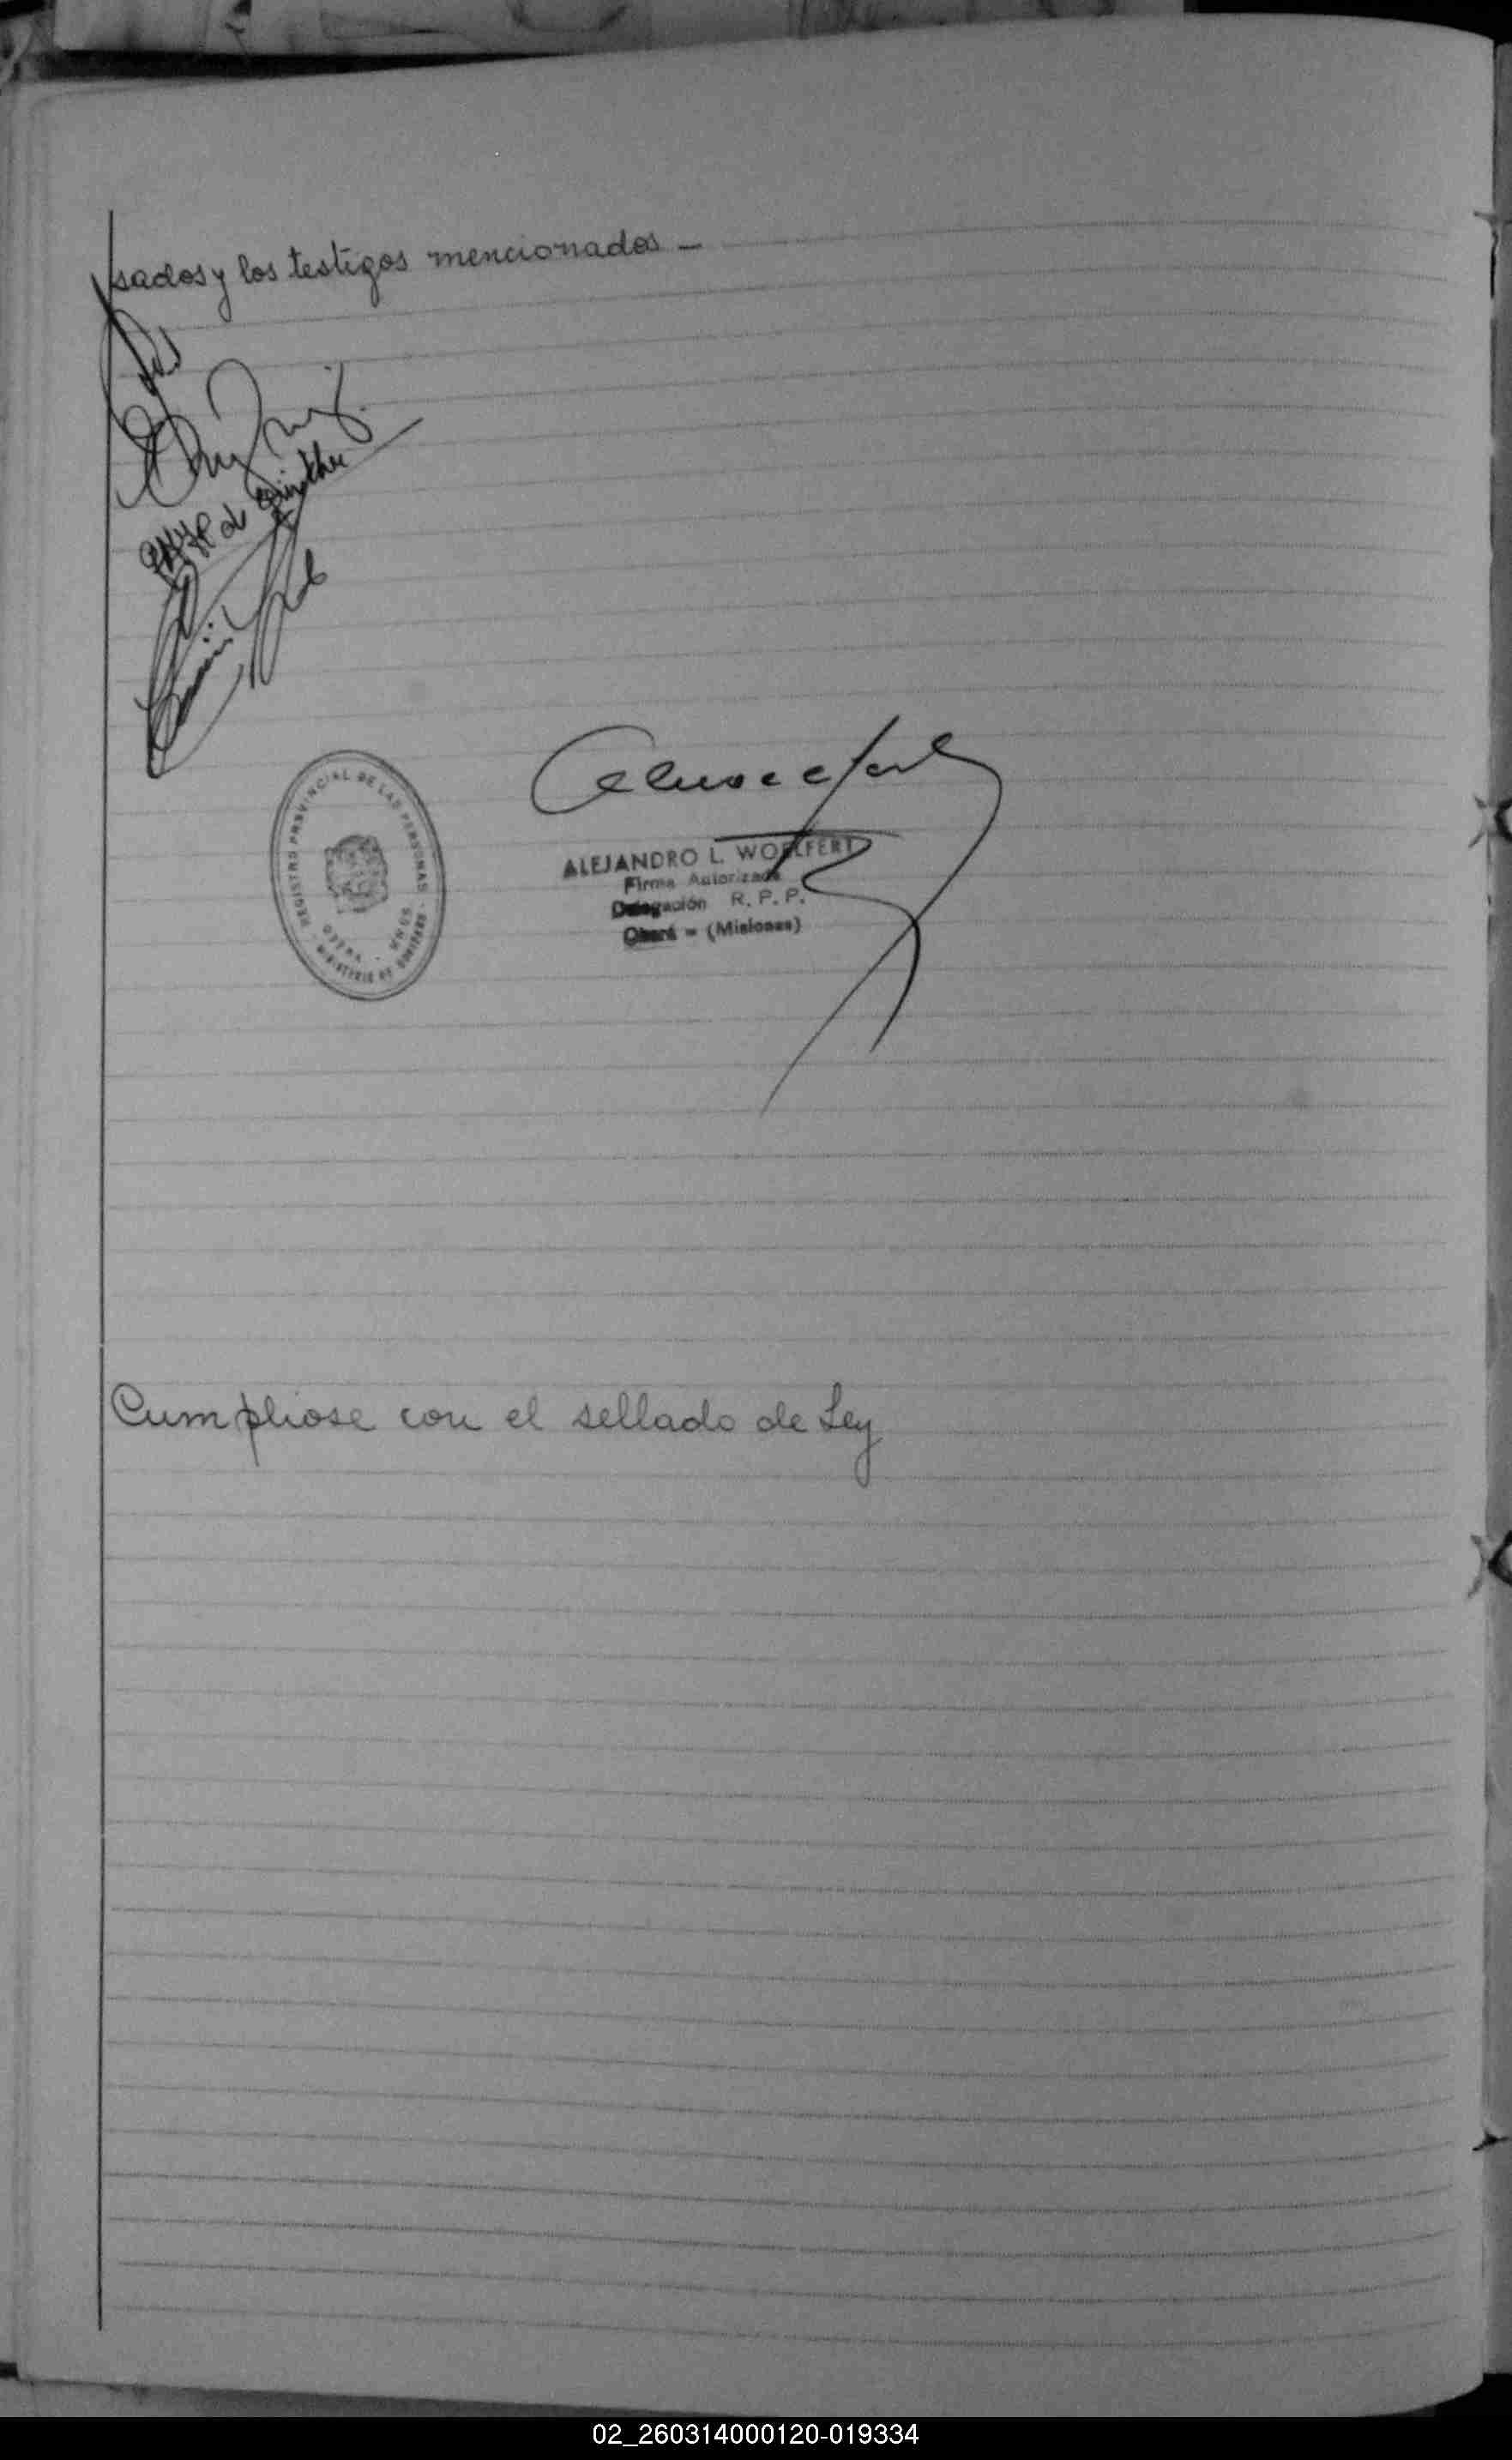 sados y los testigos mencionados -
de
REGISTRO PROVINCIAL DE LAS PERSONAS
OBERA - MNES
MINISTERIO DE GOBIERNO
ALEJANDRO L. WOELFERT
Firma Autorizada
Delegación R. P. P.
Oberá - (Misiones)
Cumpliose con el sellado de Ley
02_260314000120-019334